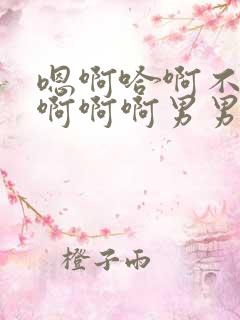 嗯啊哈啊不
啊啊啊男男
橙子雨